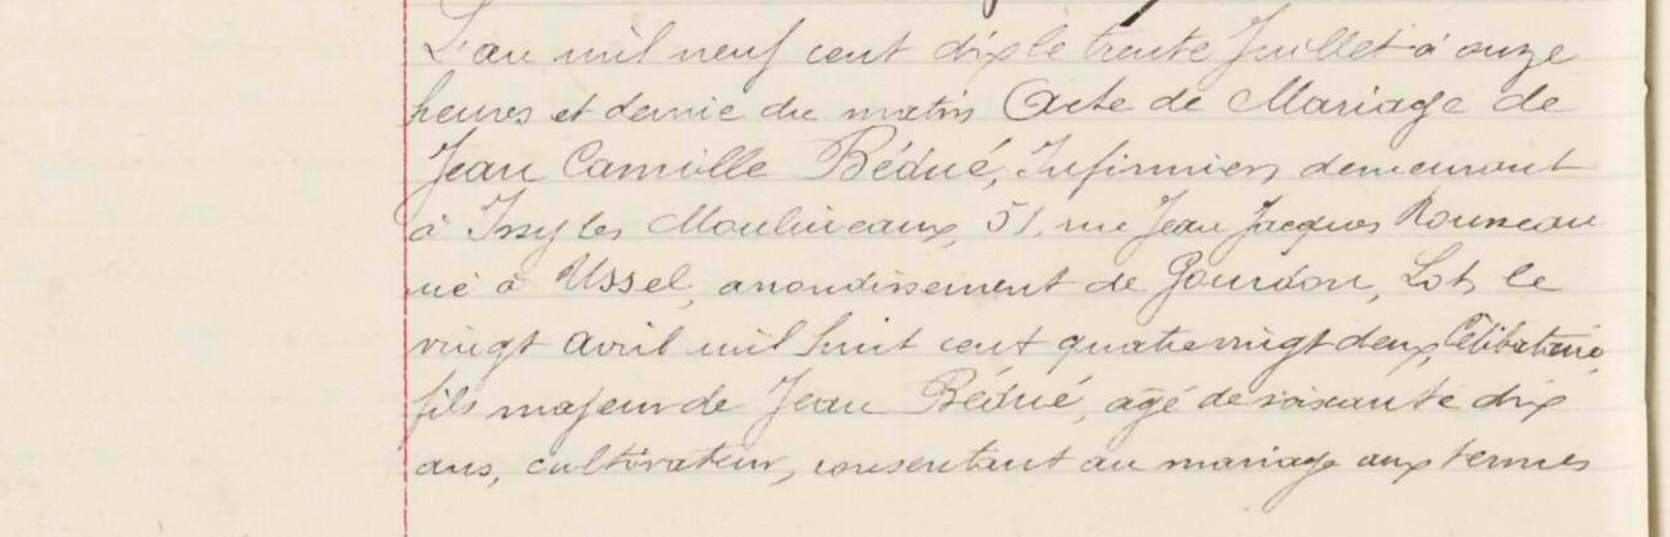 L'an mil neuf cent dix le trente Juillet à onze
heures et demie du matin Acte de Mariage de
Jean Camille Bédué, Infirmier, demeurant
à Issy les Moulineaux, 51, rue Jean Jacques Rousseau
né à Ussel, arrondissement de Gourdon, Lot, le
vingt avril mil huit cent quatre vingt deux, Célibataire,
fils majeur de Jean Bédué, agé de soixante dix
ans, cultivateur, consentant au mariage aux termes